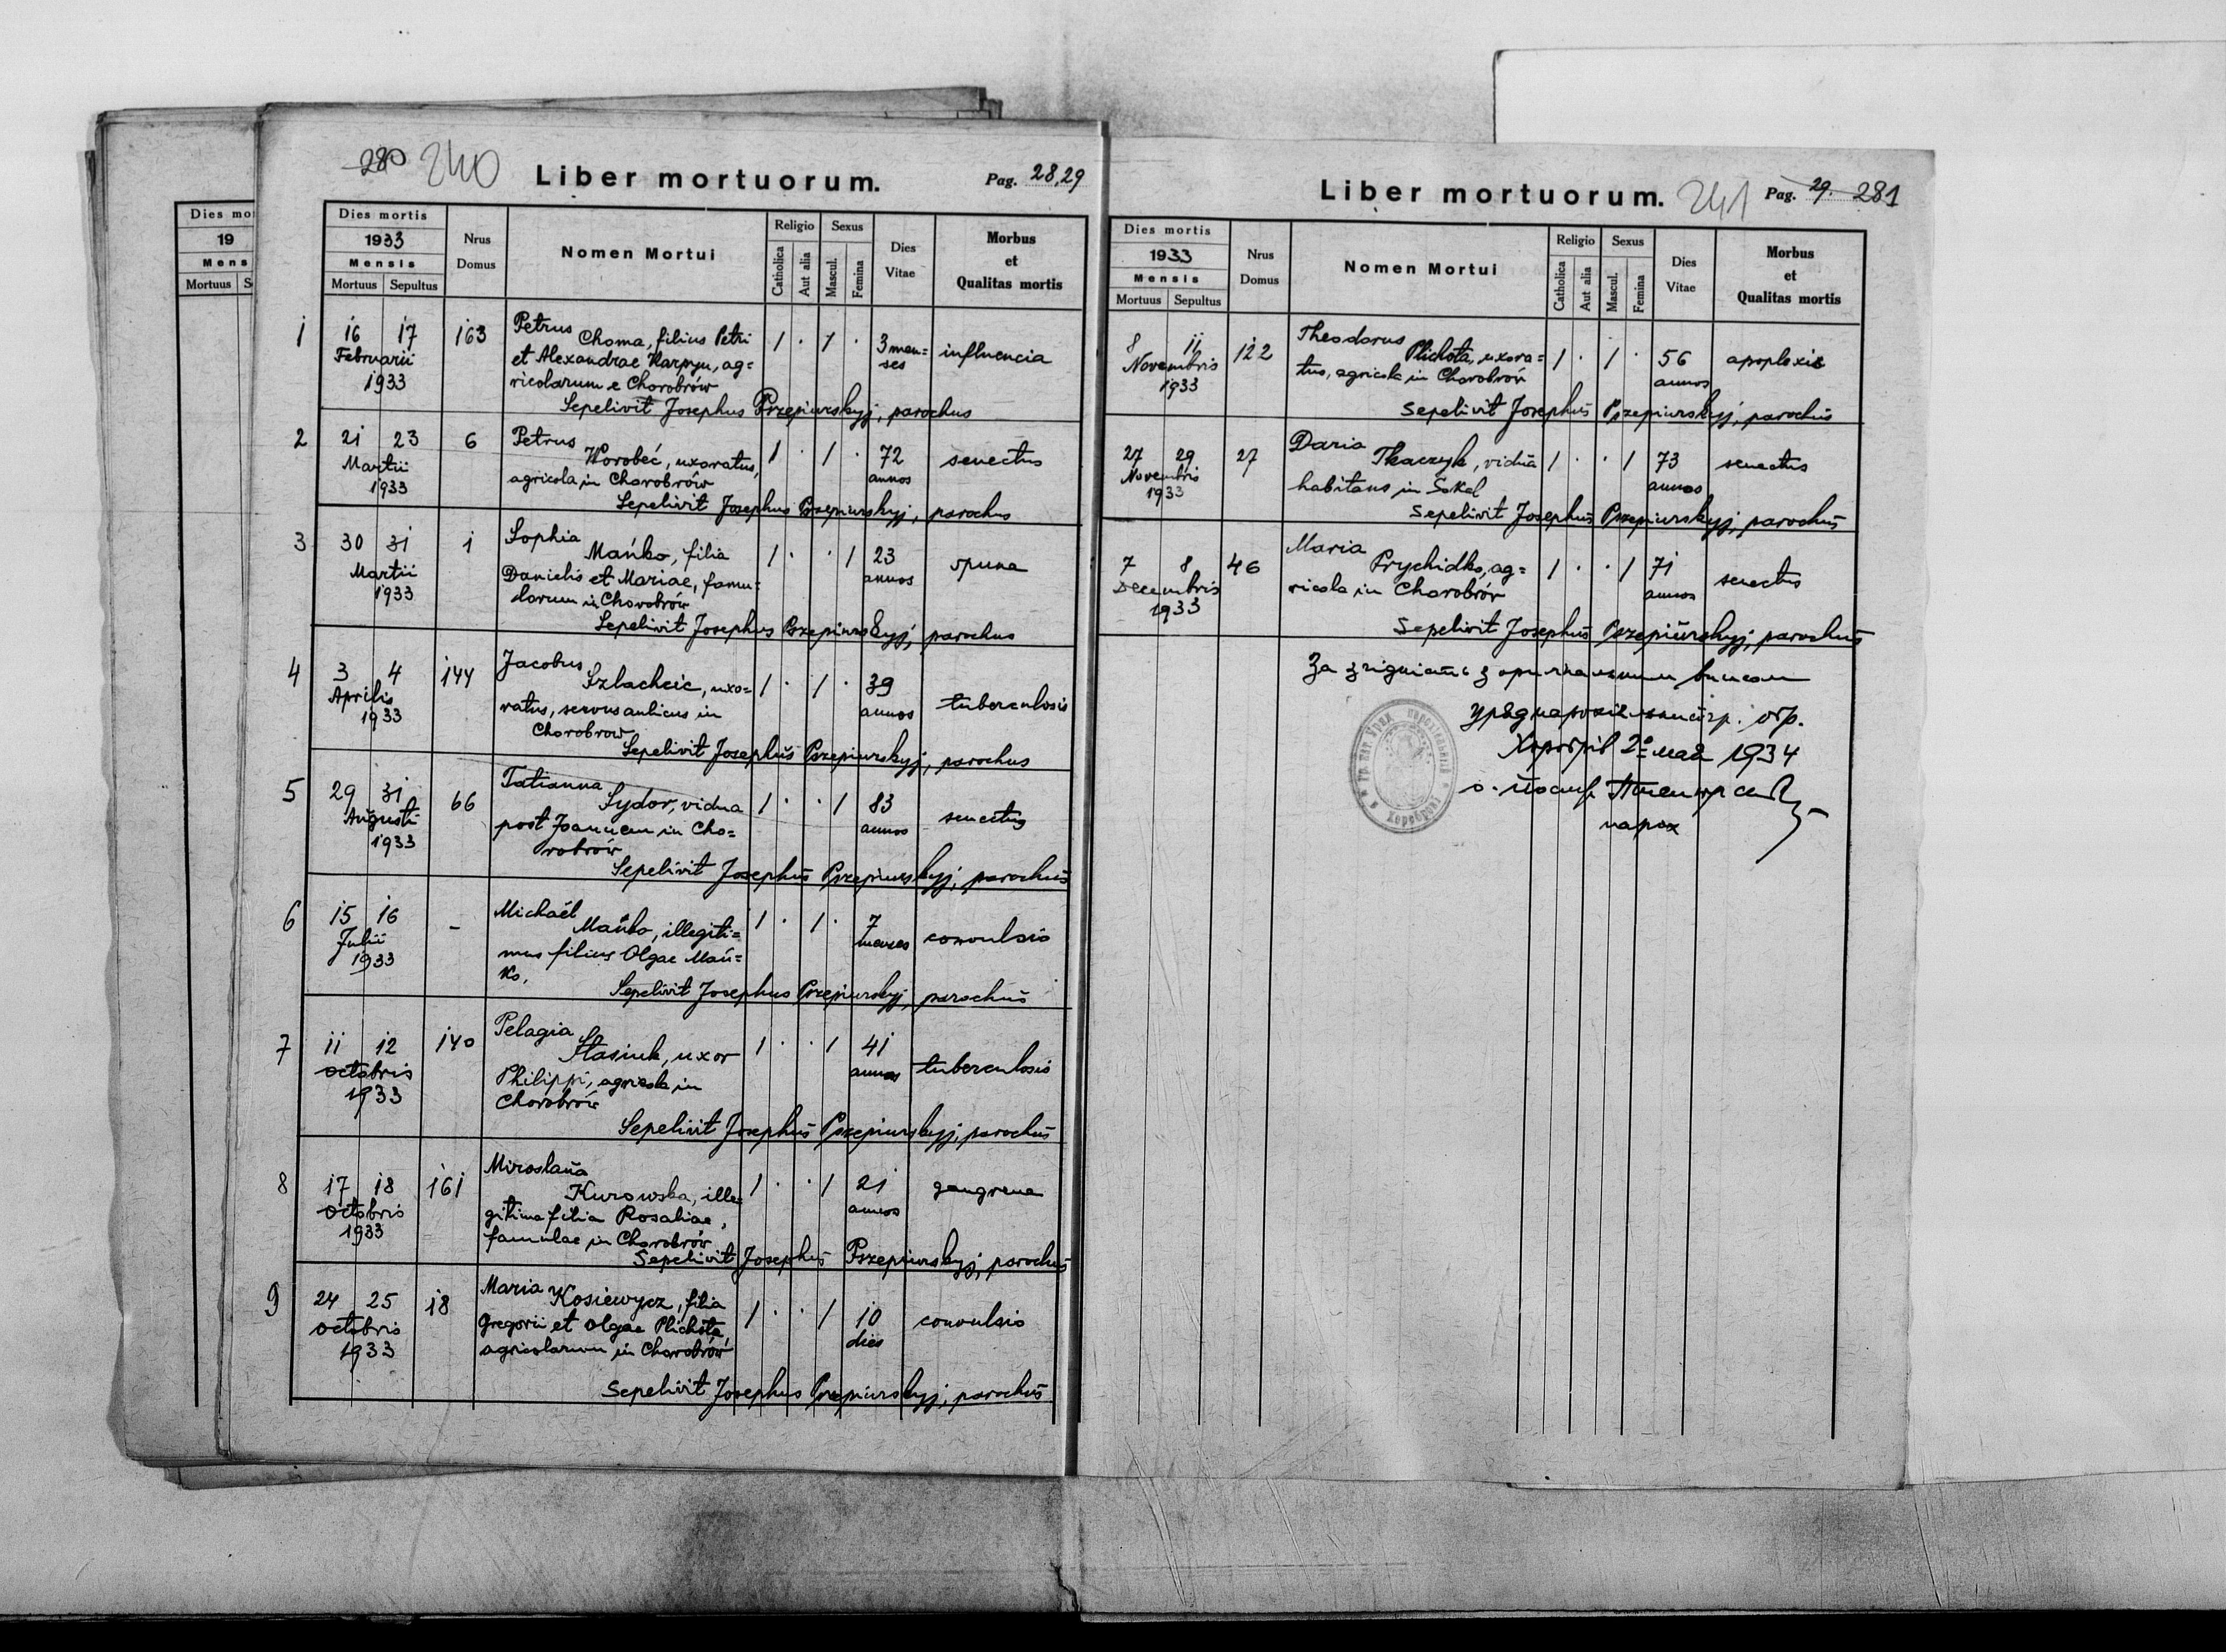 280 240 Liber mortuorum. Pag. 28,29
Dies mortis
1933
Mensis
Mortuus Sepultus
Nrus Domus
Nomen Mortui
Religio
Catholica
Aut alia
Sexus
Mascul.
Femina
Dies Vitae
Morbus et Qualitas mortis
1 16 17 163 Petrus 1 · 1 · 3 men= influencia
Februarii Choma, filius Petri ses
1933 et Alexandrae Karpyn, ag=
ricolarum e Chorobrów
Sepelivit Josephus Pszepiurskyj, parochus
2 21 23 6 Petrus 1 · 1 · 72 senectus
Martii Worobeć, uxoratus, annos
1933 agricola in Chorobrów
Sepelivit Josephus Pszepiurskyj, parochus
3 30 31 1 Sophia 1 · · 1 23
Martii Mańko, filia annos
1933 Danielis et Mariae, famu=
lorum in Chorobrów
Sepelivit Josephus Pszepiurskyj, parochus
4 3 4 144 Jacobus 1 · 1 · 39 tuberculosis
Aprilis Szlachcic, uxo= annos
1933 ratus, servus aulicus in
Chorobrow
Sepelivit Josephus Pszepiurskyj, parochus
5 29 31 66 Tatianna 1 · · 1 83 senectus
Augusti Sydor, vidua annos
1933 post Joannem in Cho=
robrów
Sepelivit Josephus Pszepiurskyj, parochus
6 15 16 - Michaël 1 · 1 · 7 convulsio
Julii Mańko, illegiti= menses
1933 mus filius Olgae Mań=
ko.
Sepelivit Josephus Pszepiurskyj, parochus
7 11 12 140 Pelagia 1 · · 1 41 tuberculosis
octobris Stasiuk, uxor annos
1933 Philippi, agricola in
Chorobrów
Sepelivit Josephus Pszepiurskyj, parochus
8 17 18 161 Miroslaŭa 1 · · 1 21 gangrena
octobris Kurowska, ille= annos
1933 gitima filia Rosaliae,
famulae in Chorobrów
Sepelivit Josephus Pszepiurskyj, parochus
9 24 25 18 Maria 1 · · 1 10 convulsio
octobris Kosiewycz, filia dies
1933 Gregorii et Olgae Plichota,
agricolarum in Chorobrów
Sepelivit Josephus Pszepiurskyj, parochus
Dies mo
19
Mens
Mortuus S
Liber mortuorum. 241 Pag. 29. 281
Dies mortis
1933
Mensis
Mortuus Sepultus
Nrus Domus
Nomen Mortui
Religio
Catholica
Aut alia
Sexus
Mascul.
Femina
Dies Vitae
Morbus et Qualitas mortis
8 11 122 Theodorus 1 · 1 · 56 apoplexia
Novembris Plichota, uxora= annos
1933 tus, agricola in Chorobrów
Sepelivit Josephus Pszepiurskyj, parochus
27 29 27 Daria 1 · · 1 73 senectus
Novembris Tkaczyk, vidua annos
1933 habitans in Sokal
Sepelivit Josephus Pszepiurskyj, parochus
7 8 46 Maria 1 · · 1 71 senectus
Decembris Prychidko, ag= annos
1933 ricola in Chorobrów
Sepelivit Josephus Pszepiurskyj, parochus
За згідність з оригінальним
Хоробрів 2го мая 1934
о. Йосиф
парох